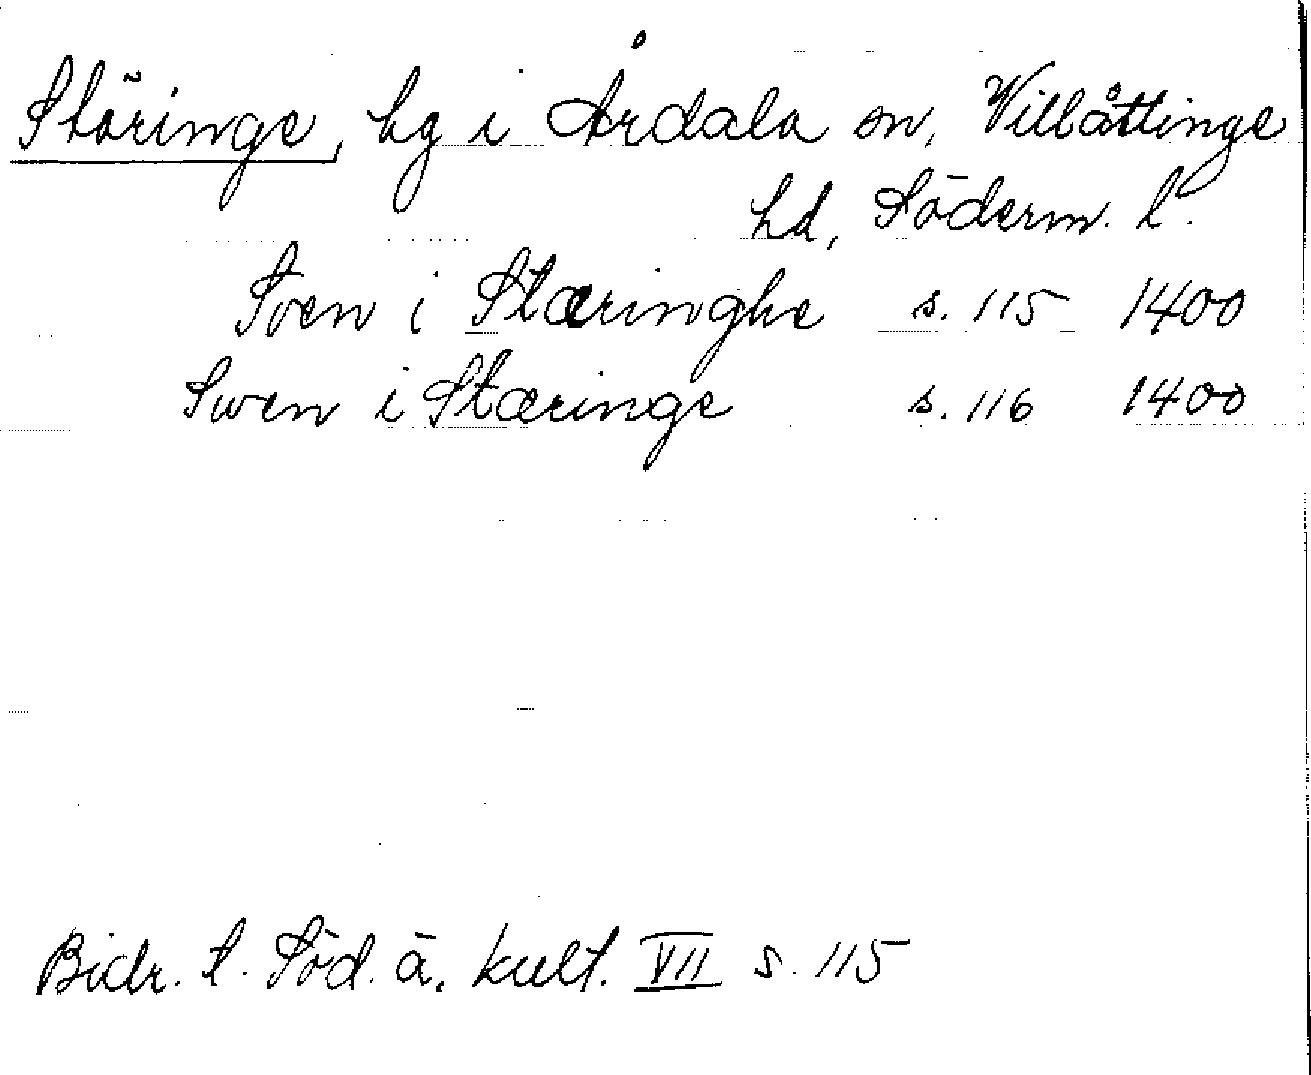 Stäringe, hg i Årdala sn, Villåttinge
hd, Söderm. l.
Sven i Stæringhe s. 115 1400
Swen i Stæringe s. 116 1400
Bidr. t. Söd. ä. kult. VII s. 115